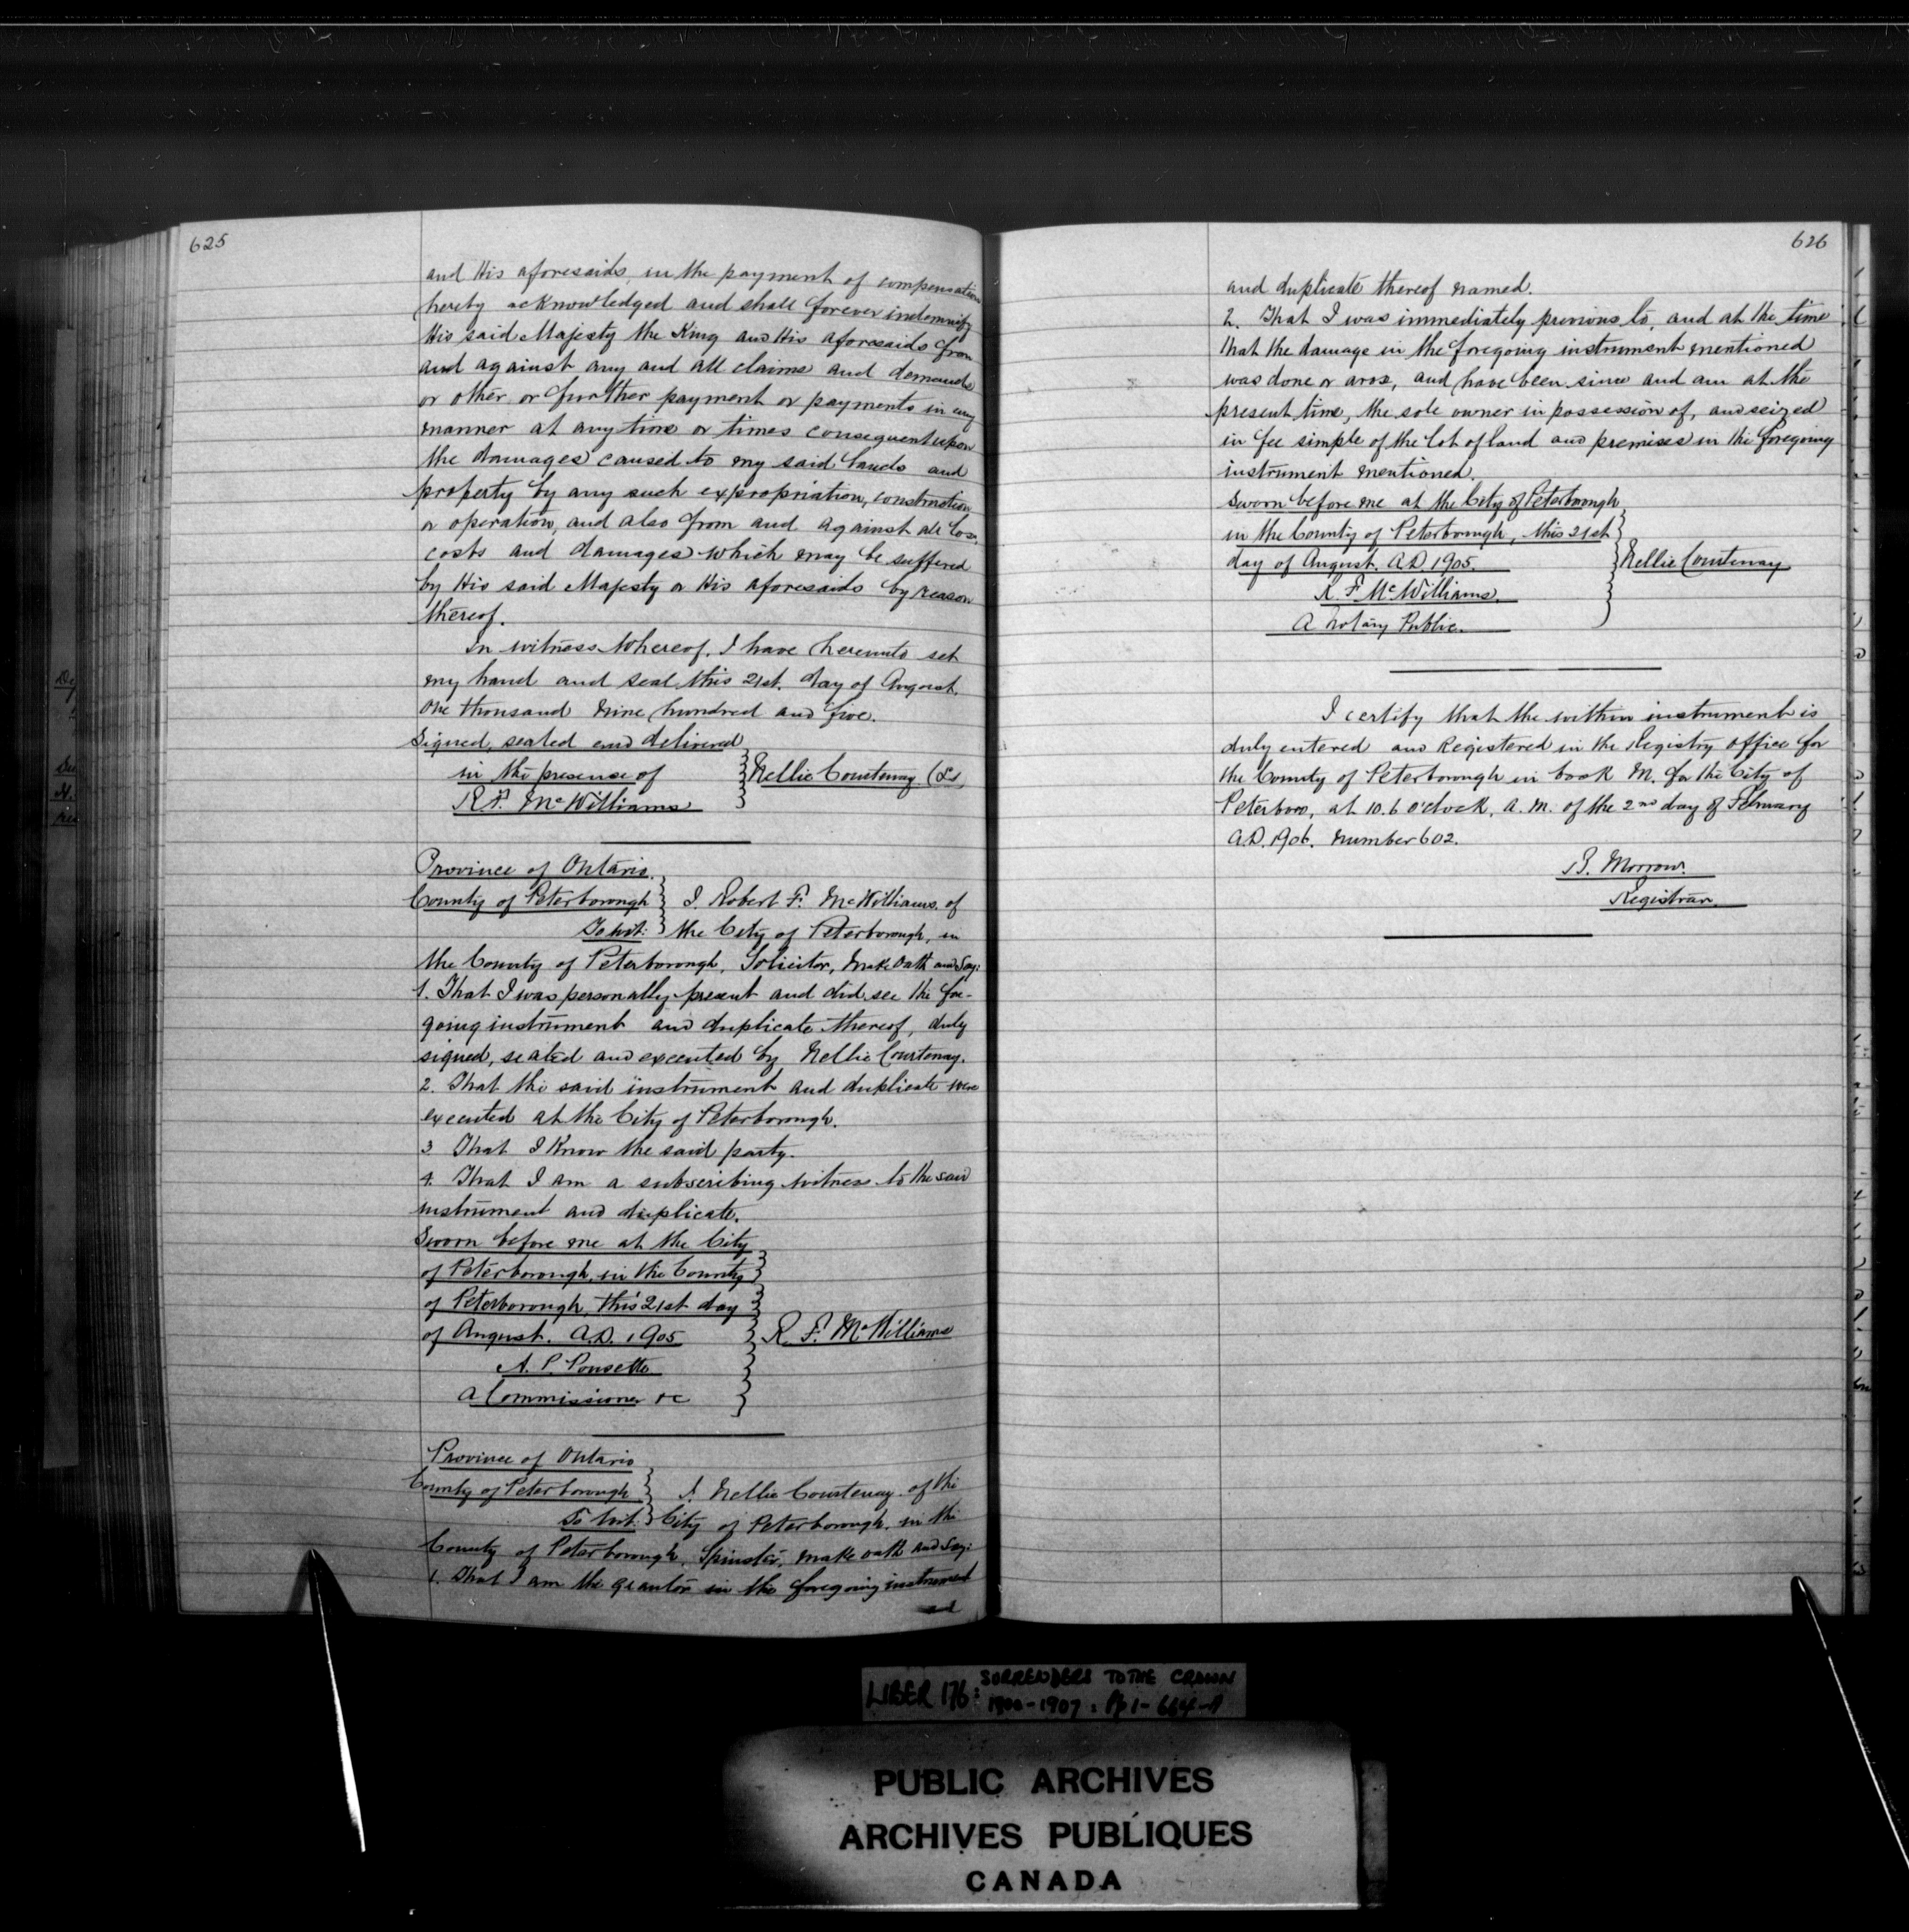 625
and His aforesaids, in the payment of compensation
hereby acknowledged and shall forever indemnify
His said Majesty the King and His aforesaids from
and against any and all claims and demands
or other or further payment or payments in any
manner at any time or times consequent upon
the damages caused to my said lands and
property by any such expropriation, construction
or operation, and also from and against all loss,
costs and damages which may be suffered
by His said Majesty or His aforesaids by reason
thereof.
In witness whereof, I have hereunto set
my hand and seal this 21st. day of August,
one thousand nine hundred and five.
Signed, sealed and delivered
in the presence of } Nellie Courtenay (Ls)
R.F. McWilliams
Province of Ontario.
County of Peterborough } I, Robert F. McWilliams, of
To wit: } the City of Peterborough, in
the County of Peterborough, Solicitor, make oath and say:
1. That I was personally present and did see the fore-
going instrument and duplicate thereof, duly
signed, sealed and executed by Nellie Courtenay.
2. That the said instrument and duplicate were
executed at the City of Peterborough.
3 That I know the said party.
4. That I am a subscribing witness to the said
instrument and duplicate.
Sworn before me at the City
of Peterborough, in the County
of Peterborough, this 21st day
of August. A.D. 1905 } R. F. McWilliams
A. P. Poussette
A Commissioner &c
Province of Ontario
County of Peterborough } I, Nellie Courtenay of the
To Wit: } City of Peterborough, in the
County of Peterborough, Spinster, make oath and say:
1. That I am the grantor in the foregoing instrument
and
626
and duplicate thereof named.
2. That I was immediately previous to, and at the time
that the damage in the foregoing instrument mentioned
was done or arose, and have been since and am at the
present time, the sole owner in possession of, and seized
in fee simple of the lot of land and premises in the foregoing
instrument mentioned.
Sworn before me at the City of Peterborough
in the County of Peterborough, this 21st
day of August. A.D. 1905. } Nellie Courtenay
R. F. McWilliams.
A Notary Public.
I certify that the within instrument is
duly entered and Registered in the Registry Office for
the County of Peterborough in book M. for the City of
Peterboro, at 10.6 o'clock, A.M. of the 2nd day of February
A.D. 1906. number 602.
B. Morrow.
Registrar.
LIBER 176: SURRENDERS TO THE CROWN
1900-1907: Pp 1-664-A
PUBLIC ARCHIVES
ARCHIVES PUBLIQUES
CANADA